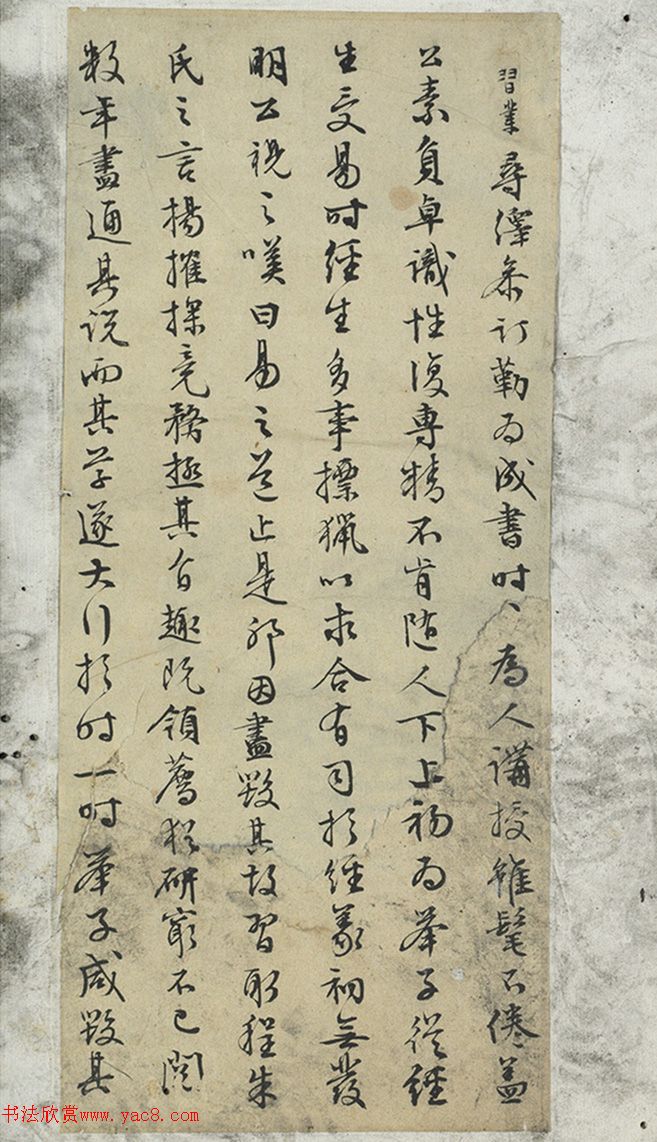 習業尋繹參訂勒為成書時、為人講授雖髦不倦蓋
公素負卓識性復專精不肯隨人下上初為舉子從經
生受易時經生多事摽獵以求合有司於經義初無發
明公視之嘆曰易之道止是邪因盡毀其故習取程朱
氏之言楊搉探竟務極其旨趣既領薦猶研窮不已閱
數年盡通其說而其學遂大行於時一時舉子咸毀其
书法欣赏www.yac8.com